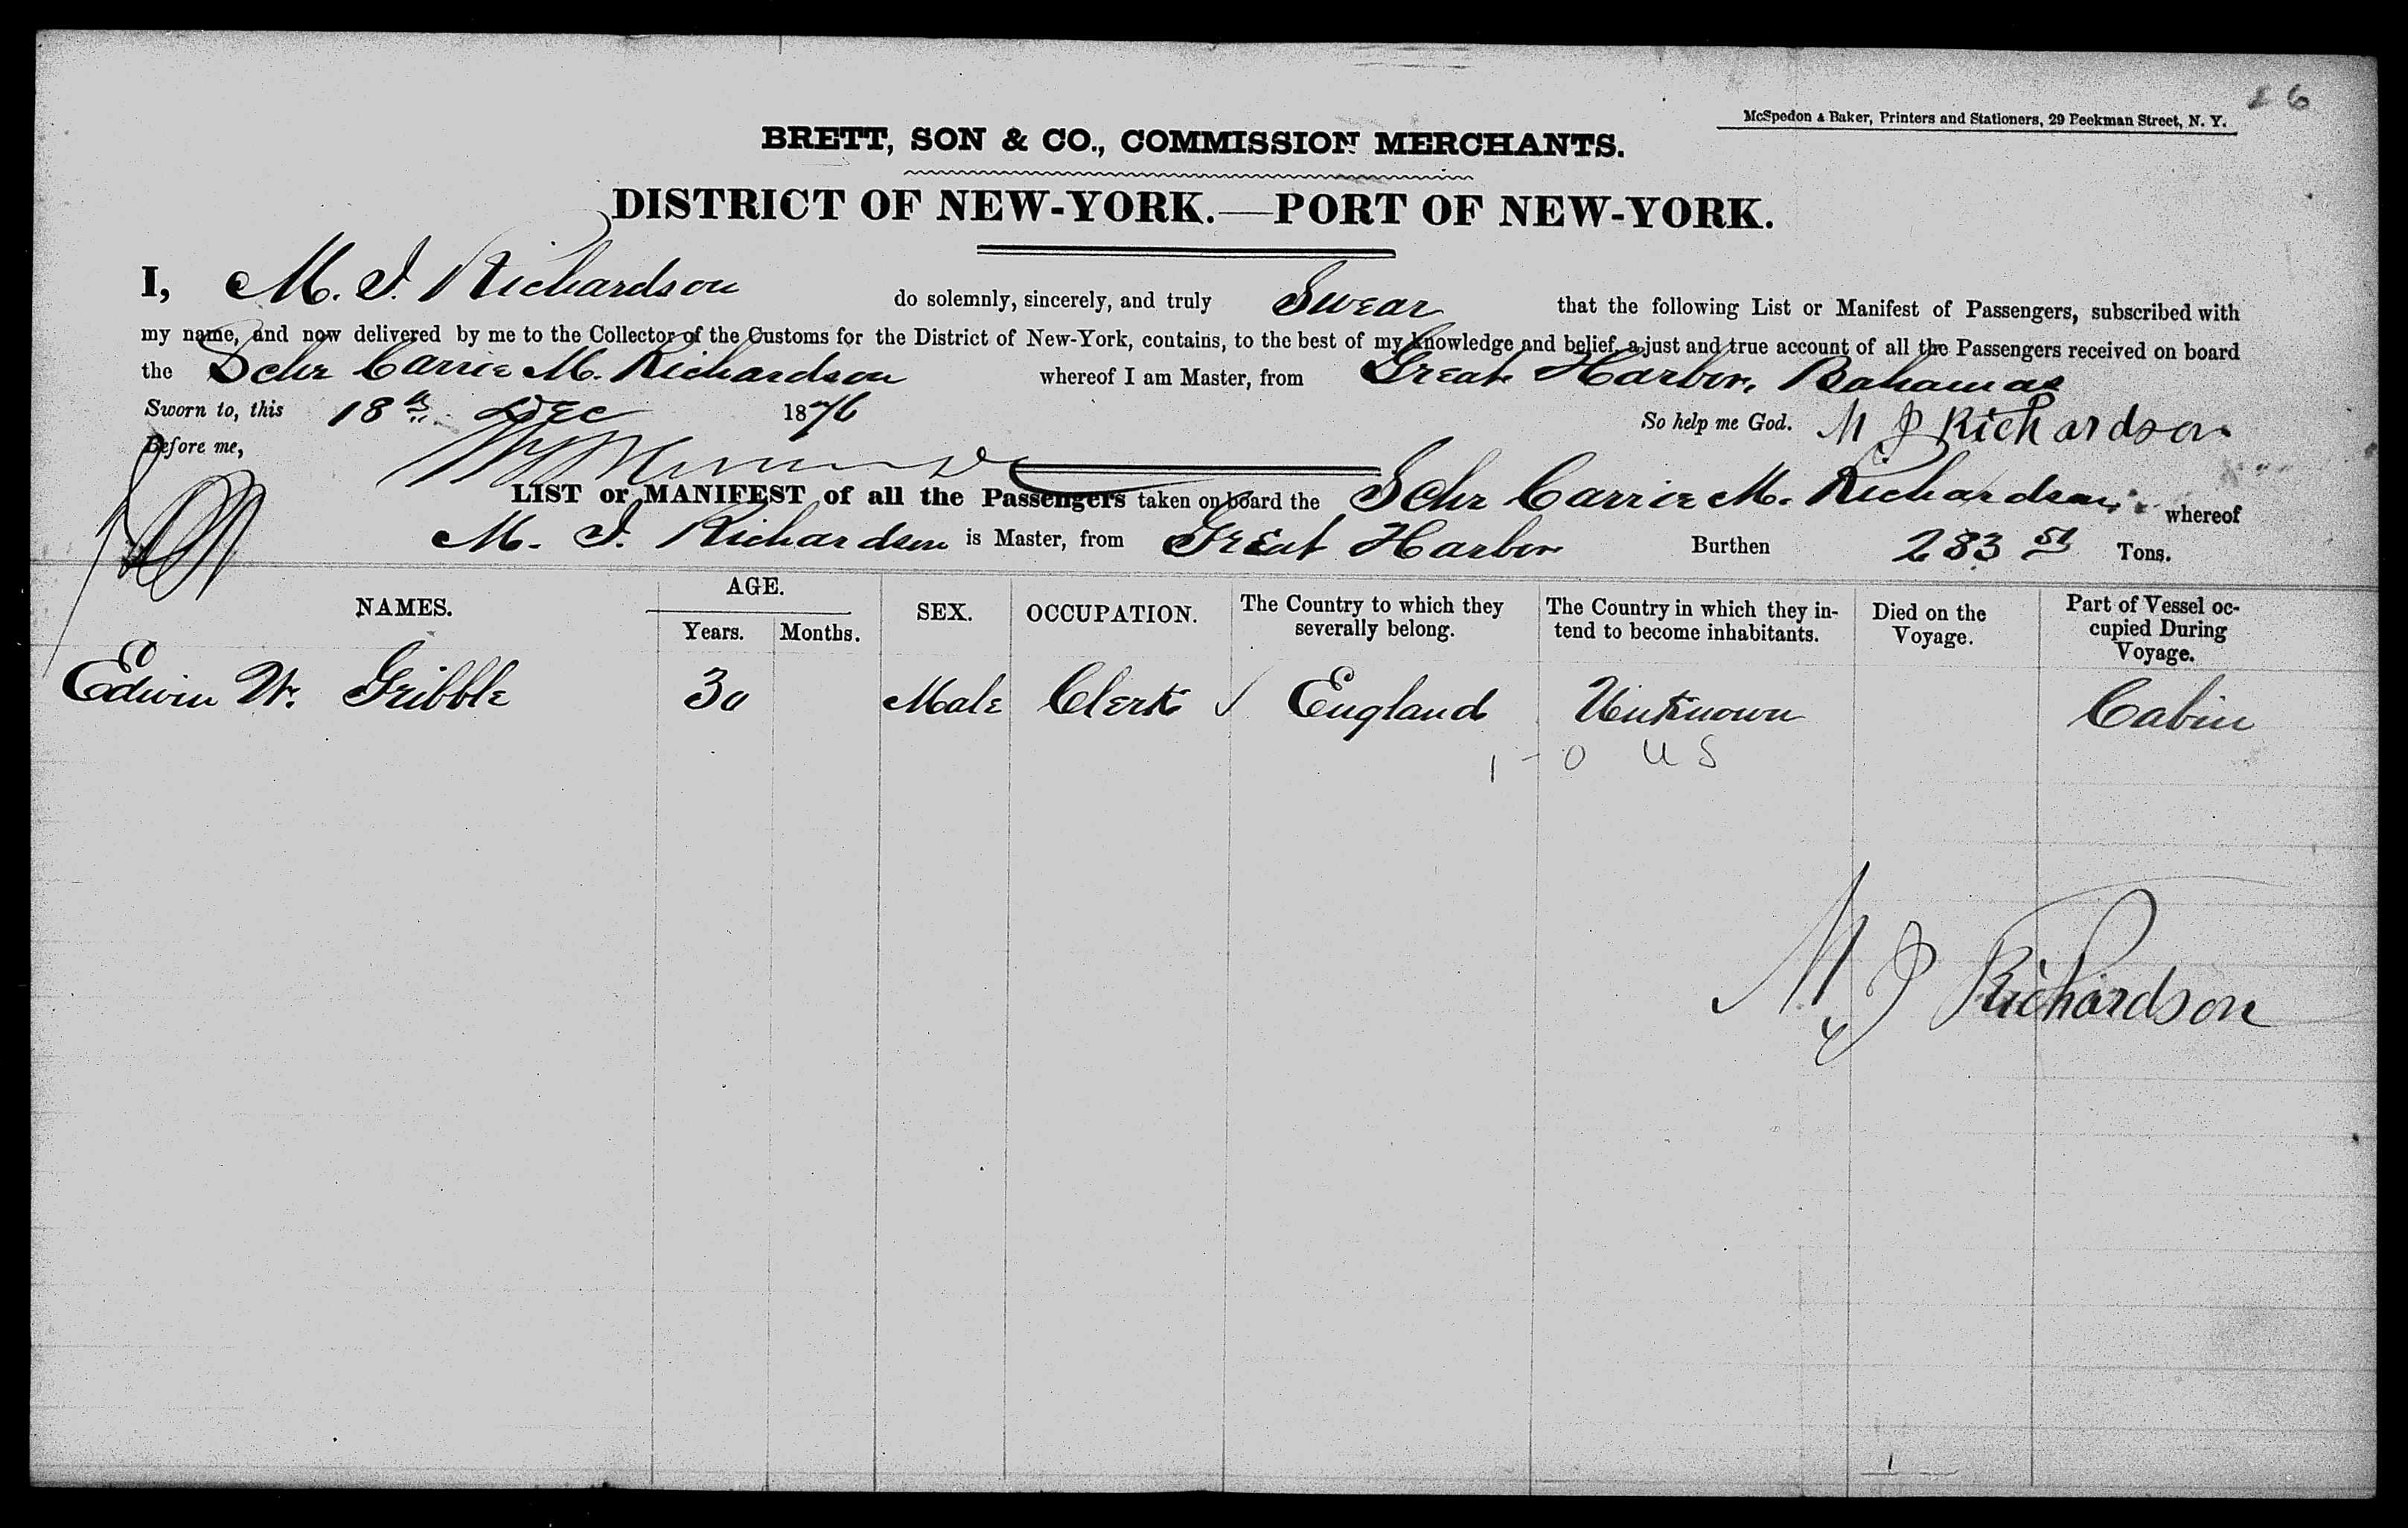 26
McSpedon & Baker, Printers and Stationers, 29 Beekman Street, N. Y.
BRETT, SON & CO., COMMISSION MERCHANTS.
DISTRICT OF NEW-YORK.—PORT OF NEW-YORK.
I, M. J. Richardson do solemnly, sincerely, and truly Swear that the following List or Manifest of Passengers, subscribed with
my name, and now delivered by me to the Collector of the Customs for the District of New-York, contains, to the best of my knowledge and belief, a just and true account of all the Passengers received on board
the Schr Carrie M. Richardson whereof I am Master, from Great Harbor, Bahamas
Sworn to, this 18th Dec 1876 So help me God. M J Richardson
Before me,
LIST or MANIFEST of all the Passengers taken on board the Schr Carrie M. Richardson, whereof
M. J. Richardson is Master, from Great Harbor Burthen 283 Tons.
NAMES. AGE. Years. Months. SEX. OCCUPATION. The Country to which they severally belong. The Country in which they intend to become inhabitants. Died on the Voyage. Part of Vessel occupied During Voyage.
Edwin W. Gribble 30 Male Clerk ✓ England Unknown Cabin
1 - 0 U S
M J Richardson